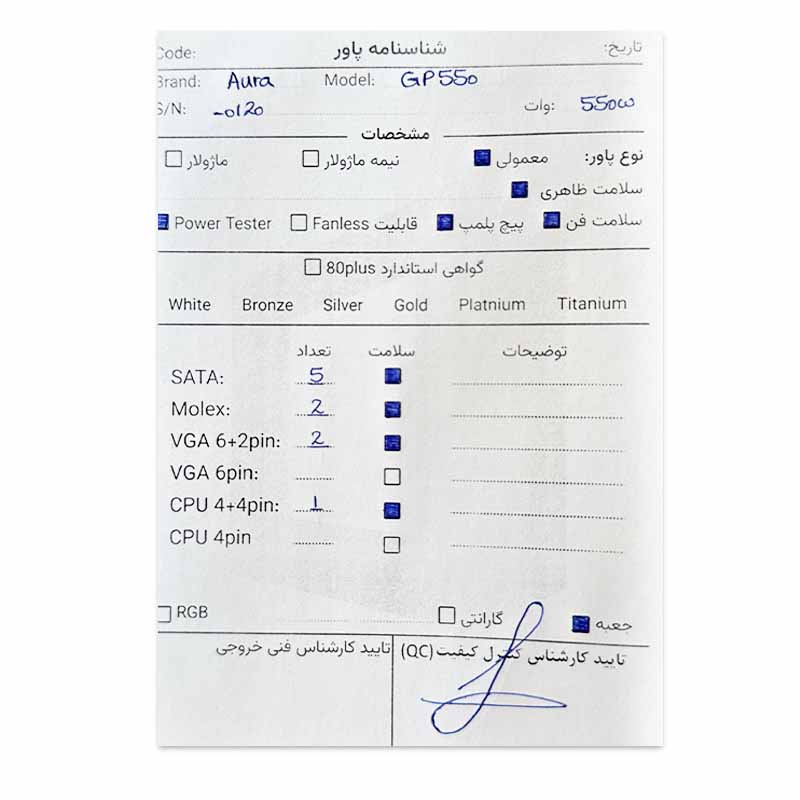 تاریخ: شناسنامه پاور Code:
Brand: Aura Model: GP550
S/N: -0120 وات: 550W
مشخصات
نوع پاور: معمولی نیمه ماژولار ماژولار
سلامت ظاهری
سلامت فن پیچ پلمپ قابلیت Fanless Power Tester
گواهی استاندارد 80plus
White Bronze Silver Gold Platnium Titanium
تعداد سلامت توضیحات
SATA: 5
Molex: 2
VGA 6+2pin: 2
VGA 6pin:
CPU 4+4pin: 1
CPU 4pin
جعبه گارانتی RGB
تایید کارشناس کنترل کیفیت (QC) تایید کارشناس فنی خروجی